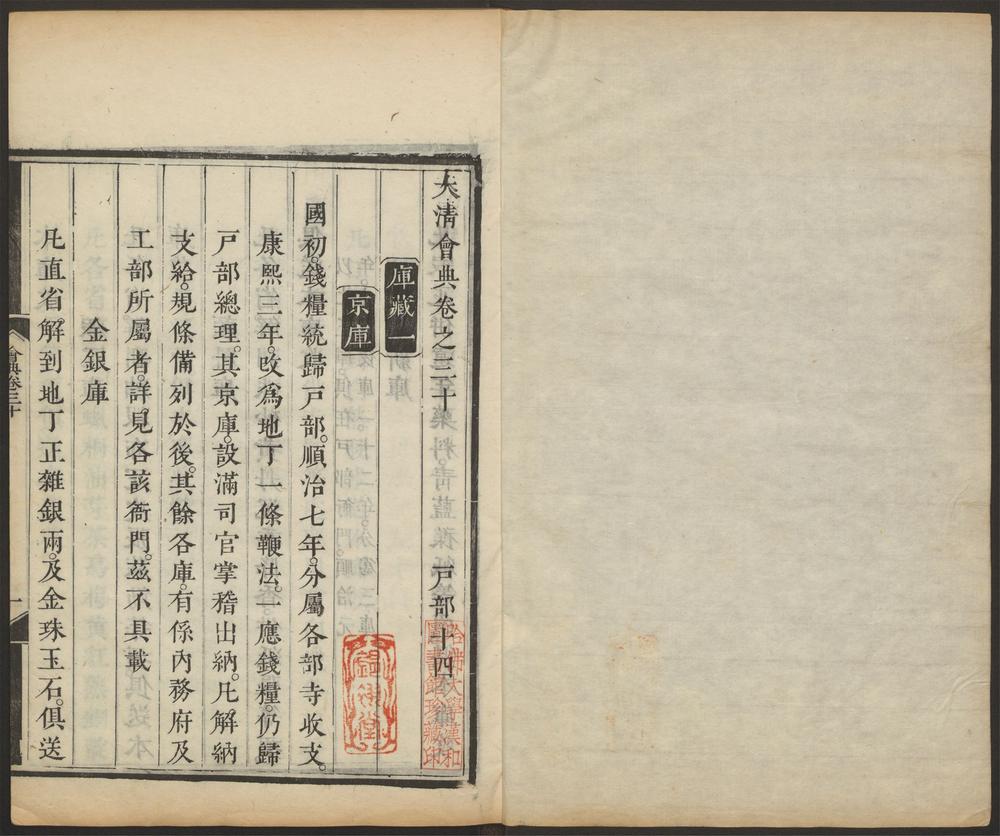 大淸會典卷之三十 戶部十四
庫藏一
京庫
國初。錢糧統歸戶部。順治七年。分屬各部寺收支。
康熙三年。改爲地丁一條鞭法。一應錢糧。仍歸
戶部總理。其京庫。設滿司官掌稽出納。凡解納
支給。規條備列於後。其餘各庫。有係內務府及
工部所屬者。詳見各該衙門。茲不具載
金銀庫
凡直省。解到地丁正雜銀兩。及金珠玉石。俱送
會典卷三十
一
哈佛大學漢和
圖書館珍藏印